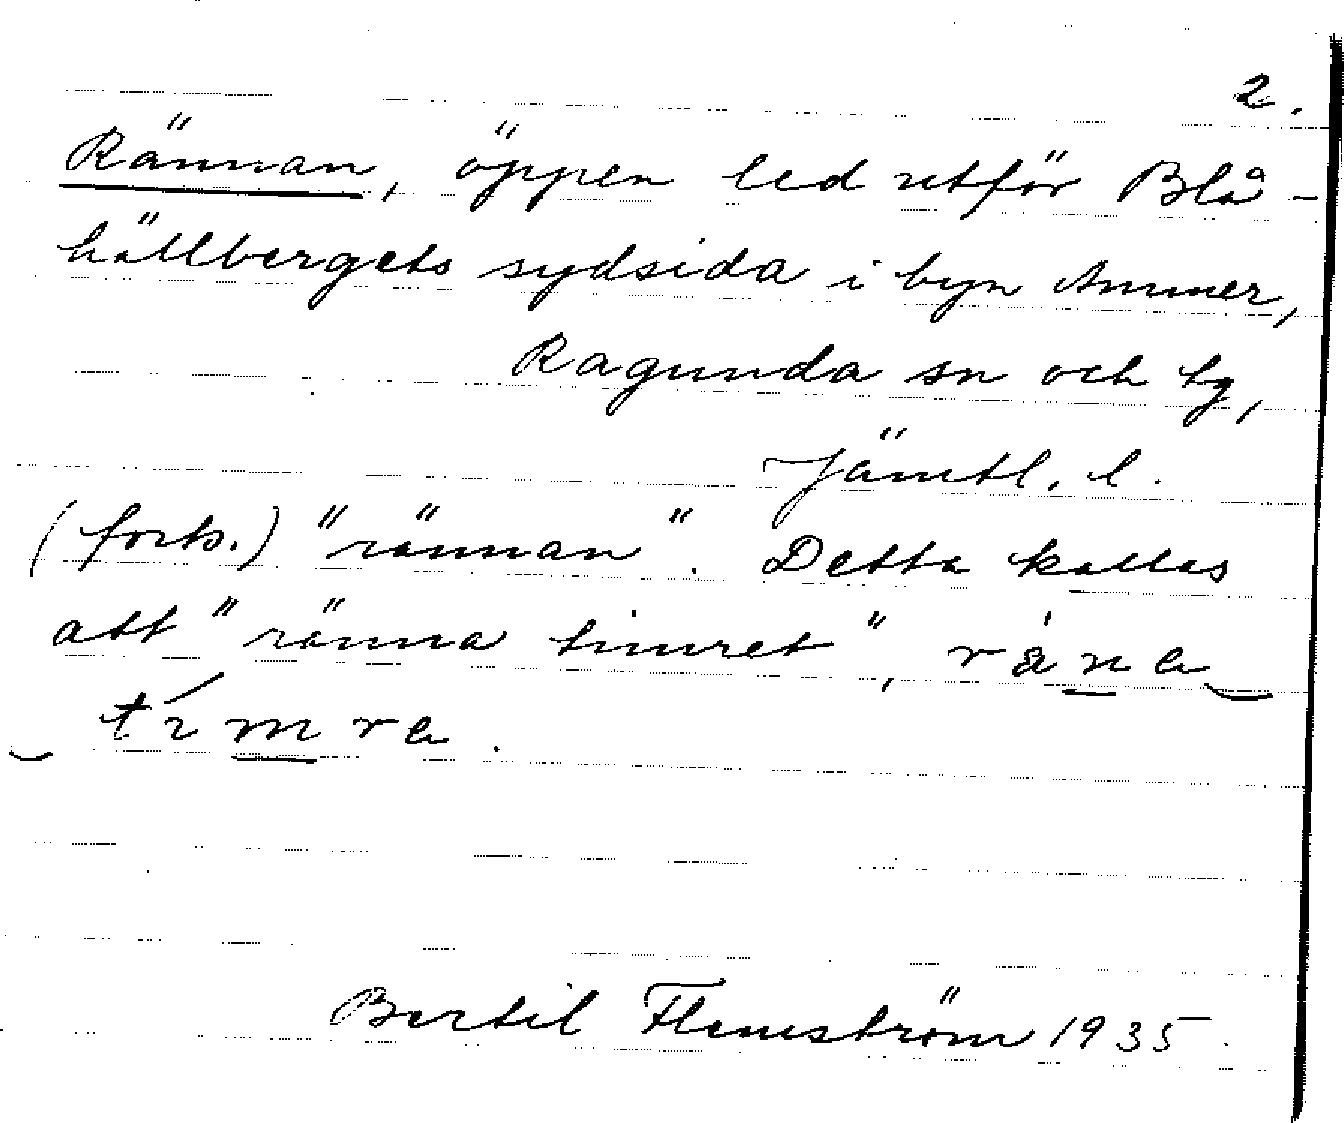 2.
Rännan, öppen led utför Blå-
hällbergets sydsida i byn Ammer,
Ragunda sn och tg,
Jämtl. l.
(forts.) "rännan". Detta kallas
att "ränna timret",
Bertil Flemström 1935.